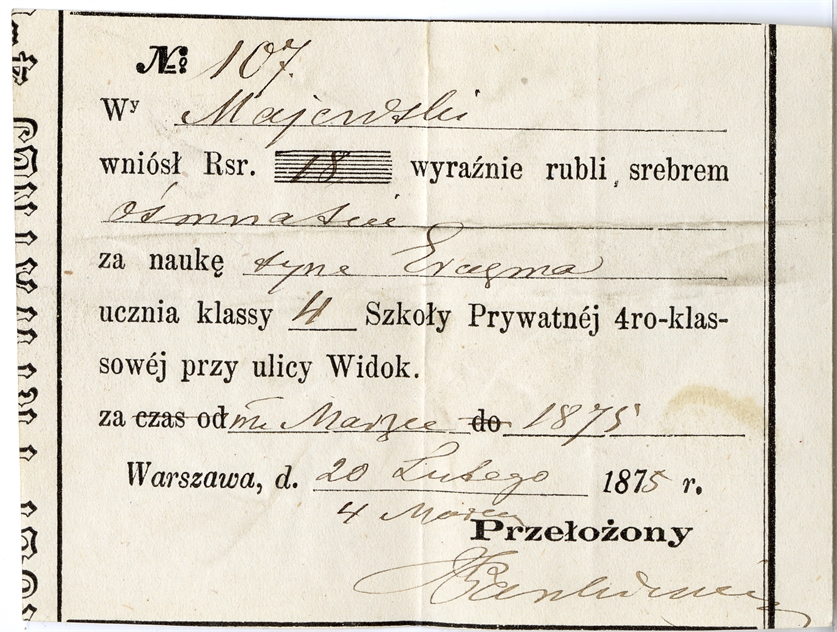 № 107.
Wʸ Majewski
wniósł Rsr. 18 wyraźnie rubli srebrem
ośmnaście
za naukę syna Erazma
ucznia klassy 4 Szkoły Prywatnéj 4ro-klas-
sowéj przy ulicy Widok.
za czas od mc Marzec do 1875
Warszawa, d. 20 Lutego 1875 r.
4 Marca
Przełożony